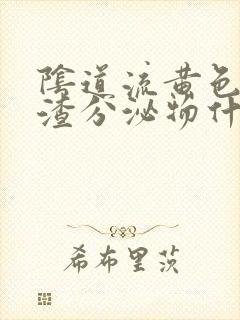 陰道流黄色
渣分泌物什
希布里茨